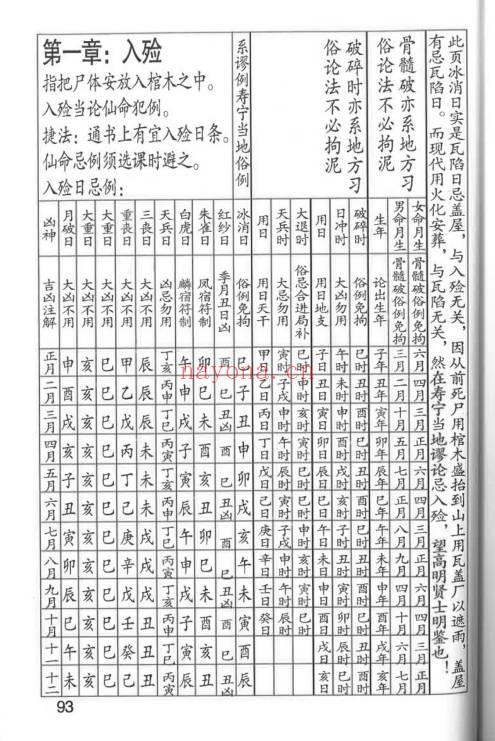 此页冰消日实是瓦陷日忌盖屋，与入殓无关，因从前死尸用棺木盛抬到山上用瓦盖厂以遮雨，盖屋
有忌瓦陷日。而现代用火化安葬，与瓦陷无关，然在寿宁当地谬论忌入殓，望高明贤士明鉴也！
骨髓破亦系地方习
俗论法不必拘泥
破碎时亦系地方习
俗论法不必拘泥
系谬例寿宁当地俗例
第一章：入殓
指把尸体安放入棺木之中。
入殓当论仙命犯例。
捷法：通书上有宜入殓日条。
仙命忌例须选课时避之。
入殓日忌例：
凶神 月破日 大重日 大重日 重丧日 三丧日 天兵日 白虎日 朱雀日 红纱日 冰消日 用日 天兵时 大退时 用日 日冲时 破碎时 生年 男命月生 女命月生
吉凶注解 大凶不用 大凶不用 大凶不用 大凶不用 大凶不用 凶忌勿用 麟宿符制 凤宿符制 季月丑日凶 俗例免拘 用日天干 大忌勿用 俗忌合进局补 用日地支 大凶不用 俗例免拘 论出生年 骨髓破俗例免拘 骨髓破俗例免拘
正月 申 亥 巳 甲 辰 丁亥 午 卯 酉 巳 甲日 寅时 子日 午时 巳时 子年 六月
二月 酉 亥 巳 乙 辰 丙申 申 巳 巳 子 乙日 子戌时 丑日 未时 丑时 丑年 四月
三月 戌 亥 巳 戊 辰 丁巳 戌 未 丑凶 丑 丙日 申时 寅日 申时 酉时 寅年 十月 三月
四月 亥 亥 巳 丙 未 丙寅 子 酉 酉 申 丁日 午时 卯日 酉时 巳时 卯年 五月 正月
五月 子 亥 巳 丁 未 丁亥 寅 亥 巳 卯 戊日 辰时 辰日 戌时 丑时 辰年 七月 六月
六月 丑 亥 巳 己 未 丙申 辰 丑 丑凶 戌 己日 寅时 巳日 亥时 酉时 巳年 正月 四月
七月 寅 亥 巳 庚 戌 丁巳 午 卯 酉 亥 庚日 子戌时 午日 子时 巳时 午年 八月 三月
八月 卯 亥 巳 辛 戌 丙寅 申 巳 巳 午 辛日 申时 未日 丑时 丑时 未年 九月 正月
九月 辰 亥 巳 戊 戌 丁亥 戌 未 丑凶 未 壬日 午时 申日 寅时 酉时 申年 四月 六月
十月 巳 亥 巳 壬 丑 丙申 子 酉 酉 寅 癸日 辰时 酉日 卯时 巳时 酉年 四月
十一 午 亥 巳 癸 丑 丁巳 寅 亥 巳 酉 戌日 辰时 丑时 戌年 三月
十二 未 亥 巳 己 丑 丙寅 辰 丑 丑凶 辰 亥日 巳时 酉时 亥年
93
nayona.cn